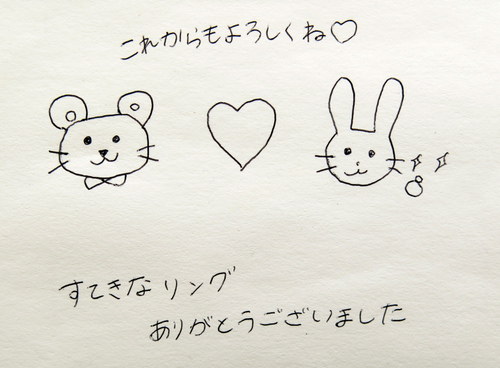 これからもよろしくね♡
すてきなリング
ありがとうございました